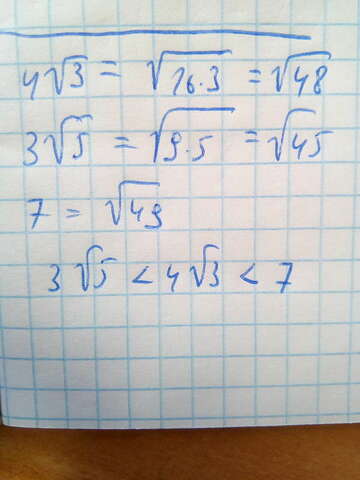 4√3 = √16·3 = √48
3√5 = √9·5 = √45
7 = √49
3√5 < 4√3 < 7